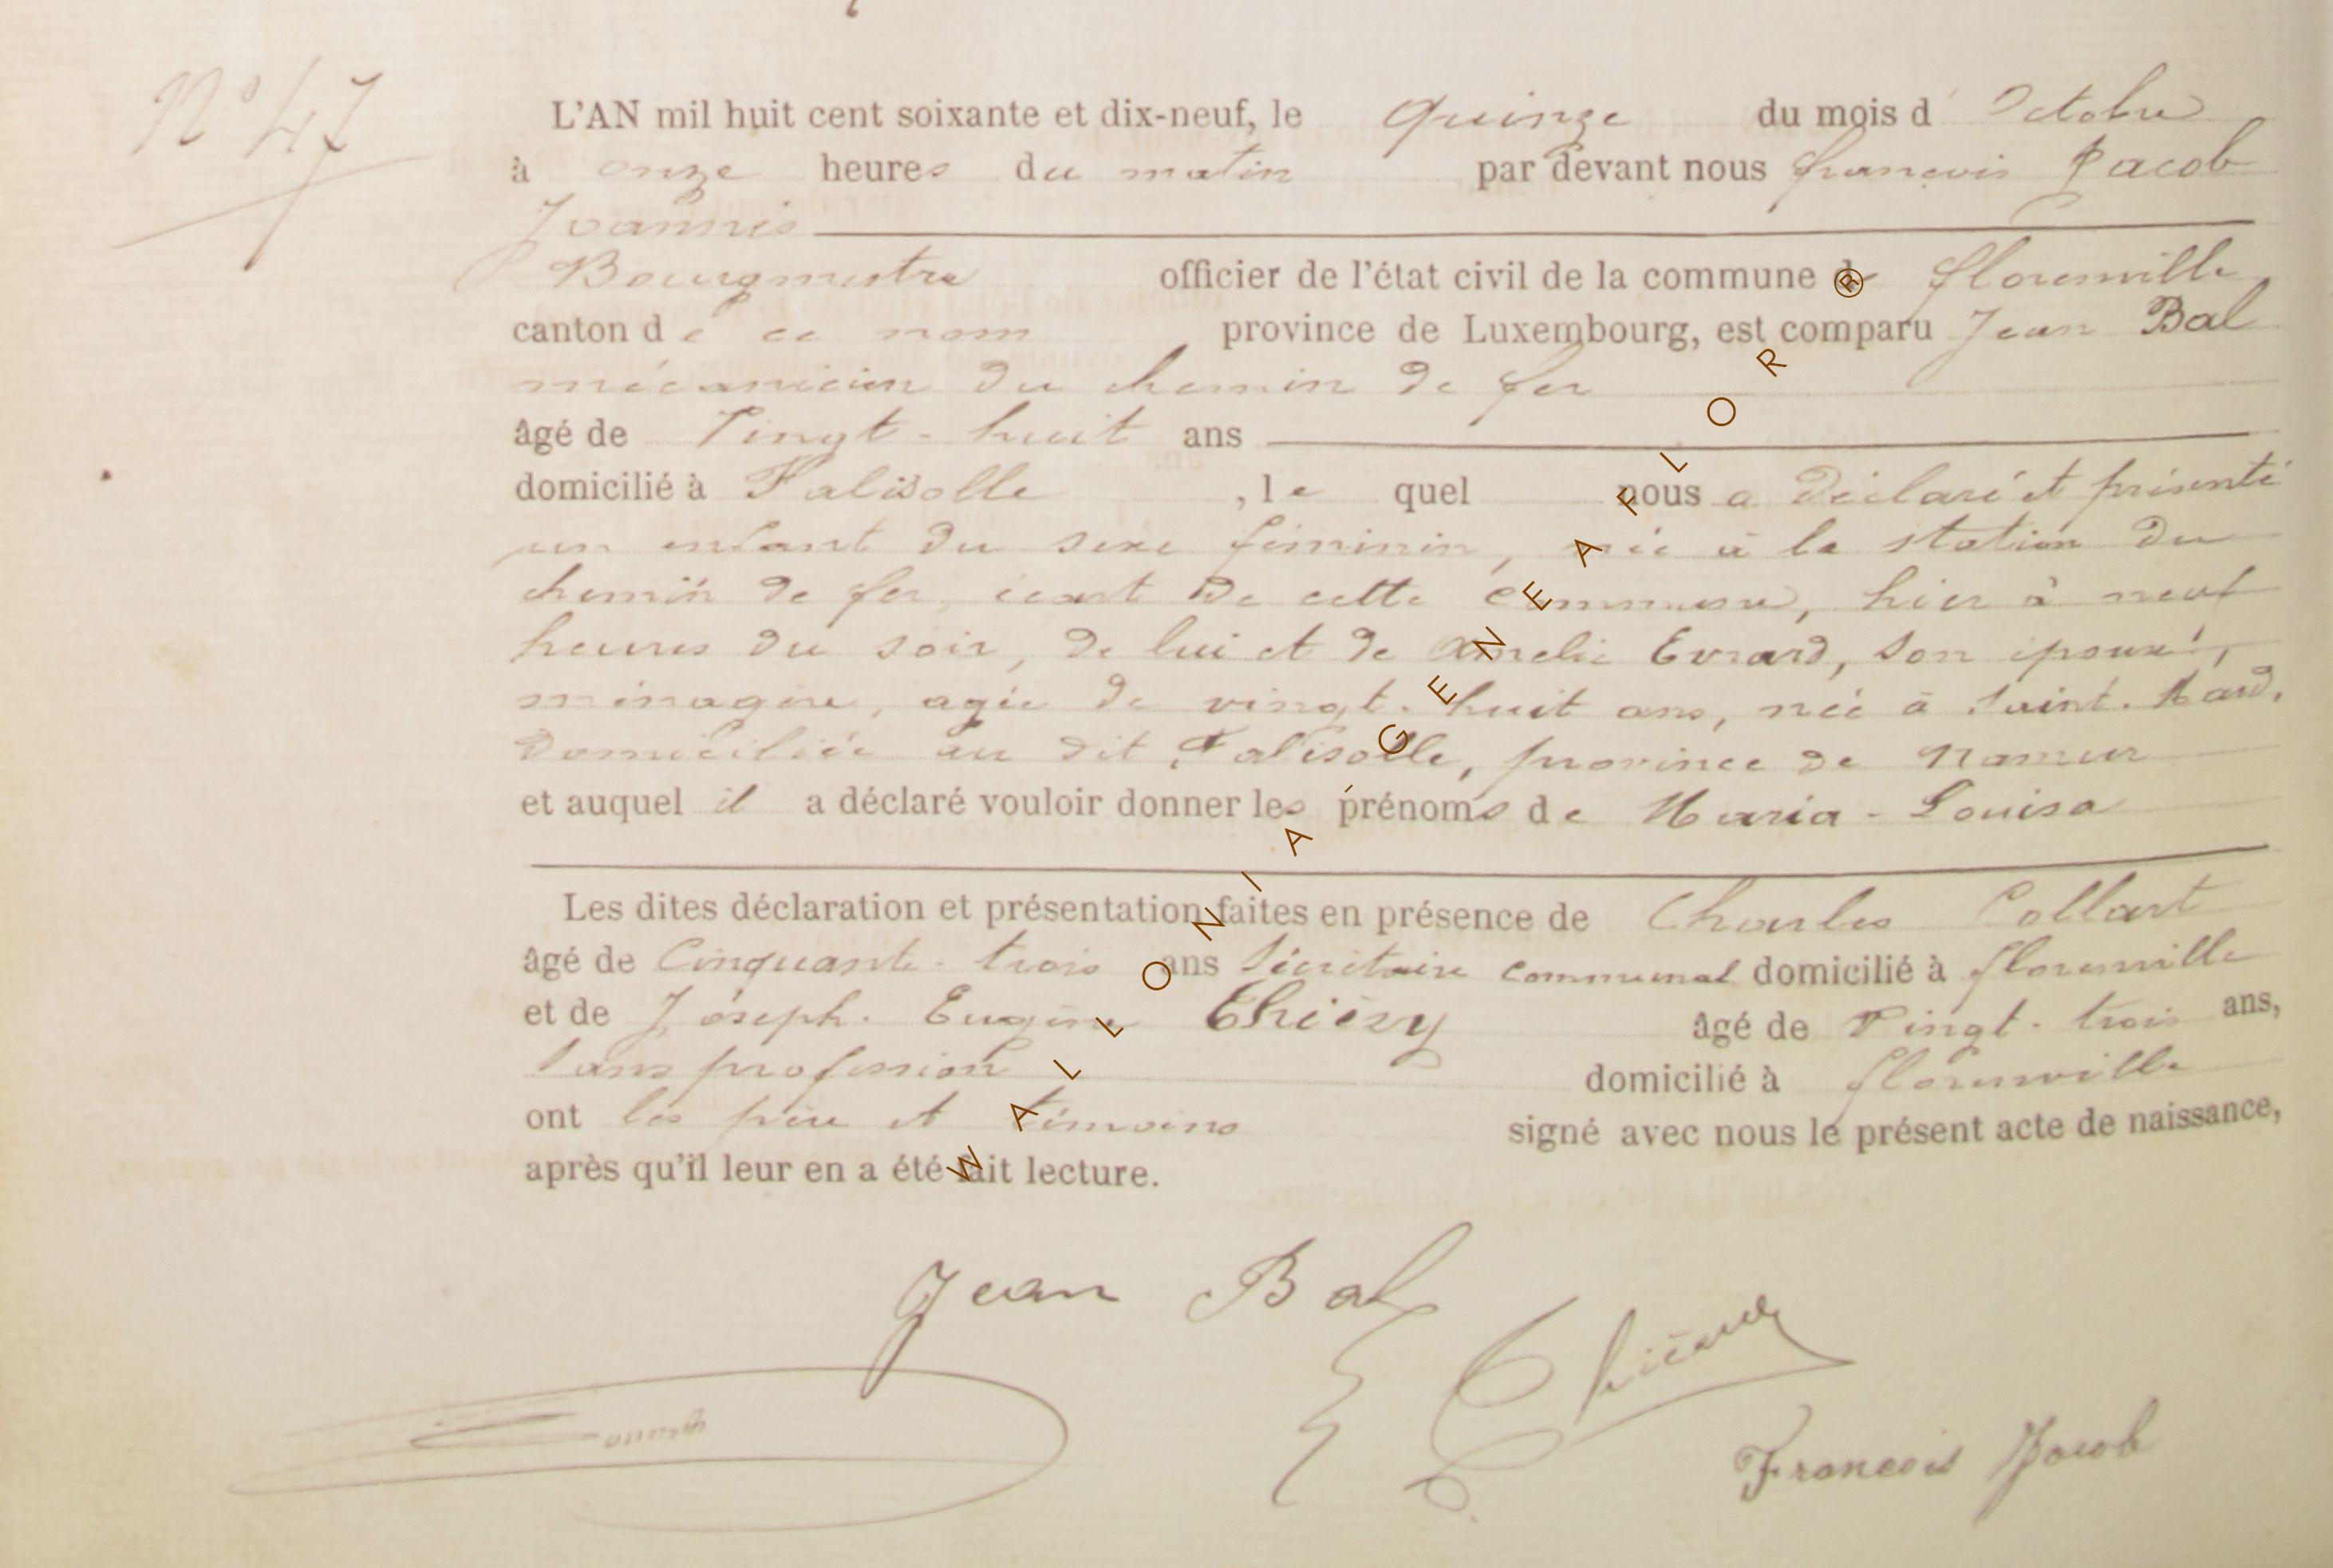 N° 47
L'AN mil huit cent soixante et dix-neuf, le quinze du mois d'Octobre
à onze heures du matin par devant nous françois Jacob
Joannis
Bourgmestre officier de l'état civil de la commune de florenville
canton de ce nom province de Luxembourg, est comparu Jean Bal
mécanicien du chemin de fer
âgé de Vingt-huit ans
domicilié à Falisolle, le quel nous a déclaré et présenté
un enfant du sexe féminin, née à la station du
chemin de fer, écart de cette commune, hier à neuf
heures du soir, de lui et de amelie Evrard, son épouse,
ménagère, agée de vingt-huit ans, née à Saint-Mard,
domiciliée au dit Falisolle, province de Namur
et auquel il a déclaré vouloir donner les prénoms de Maria-Louisa
Les dites déclaration et présentation faites en présence de Charles Collart
âgé de Cinquante-trois ans Sécritaire communal domicilié à florenville
et de Joseph-Eugène Thiéry âgé de Vingt-trois ans,
Sans profession domicilié à florenville
ont les père et témoins signé avec nous le présent acte de naissance,
après qu'il leur en a été fait lecture.
Jean Bal
E Thiéry
François Jacob
WALLONIA'GENEAFLOR®